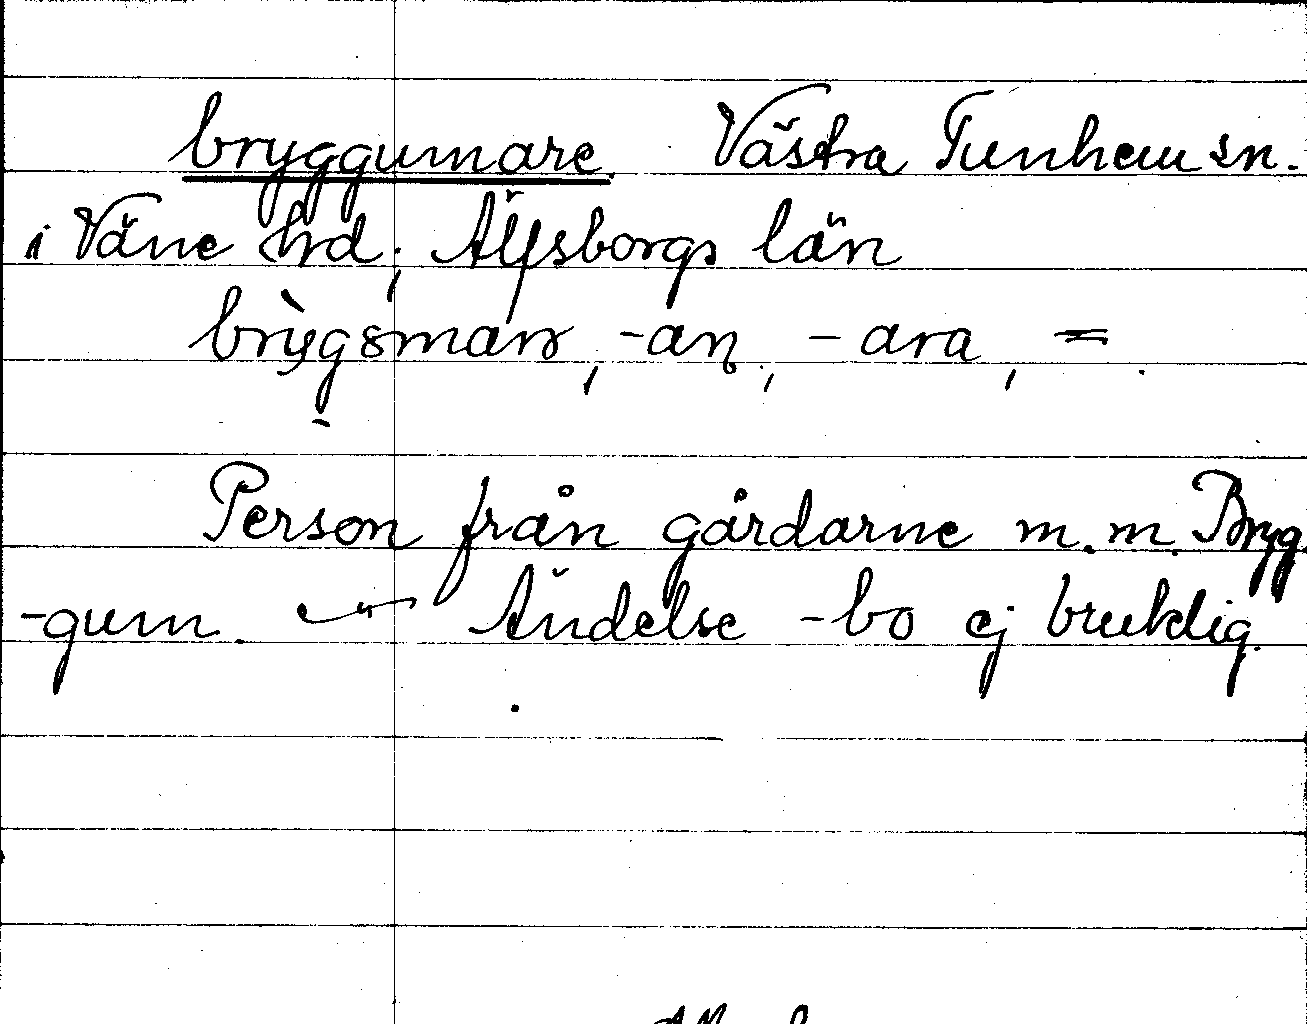 bryggumare. Västra Tunhem sn.
i Väne hrd; Älfsborgs län
brỳgsmarr, -an, -ara, =.
Person från gårdarne m.m. Bryg
-gum. Ändelse -bo ej bruklig.